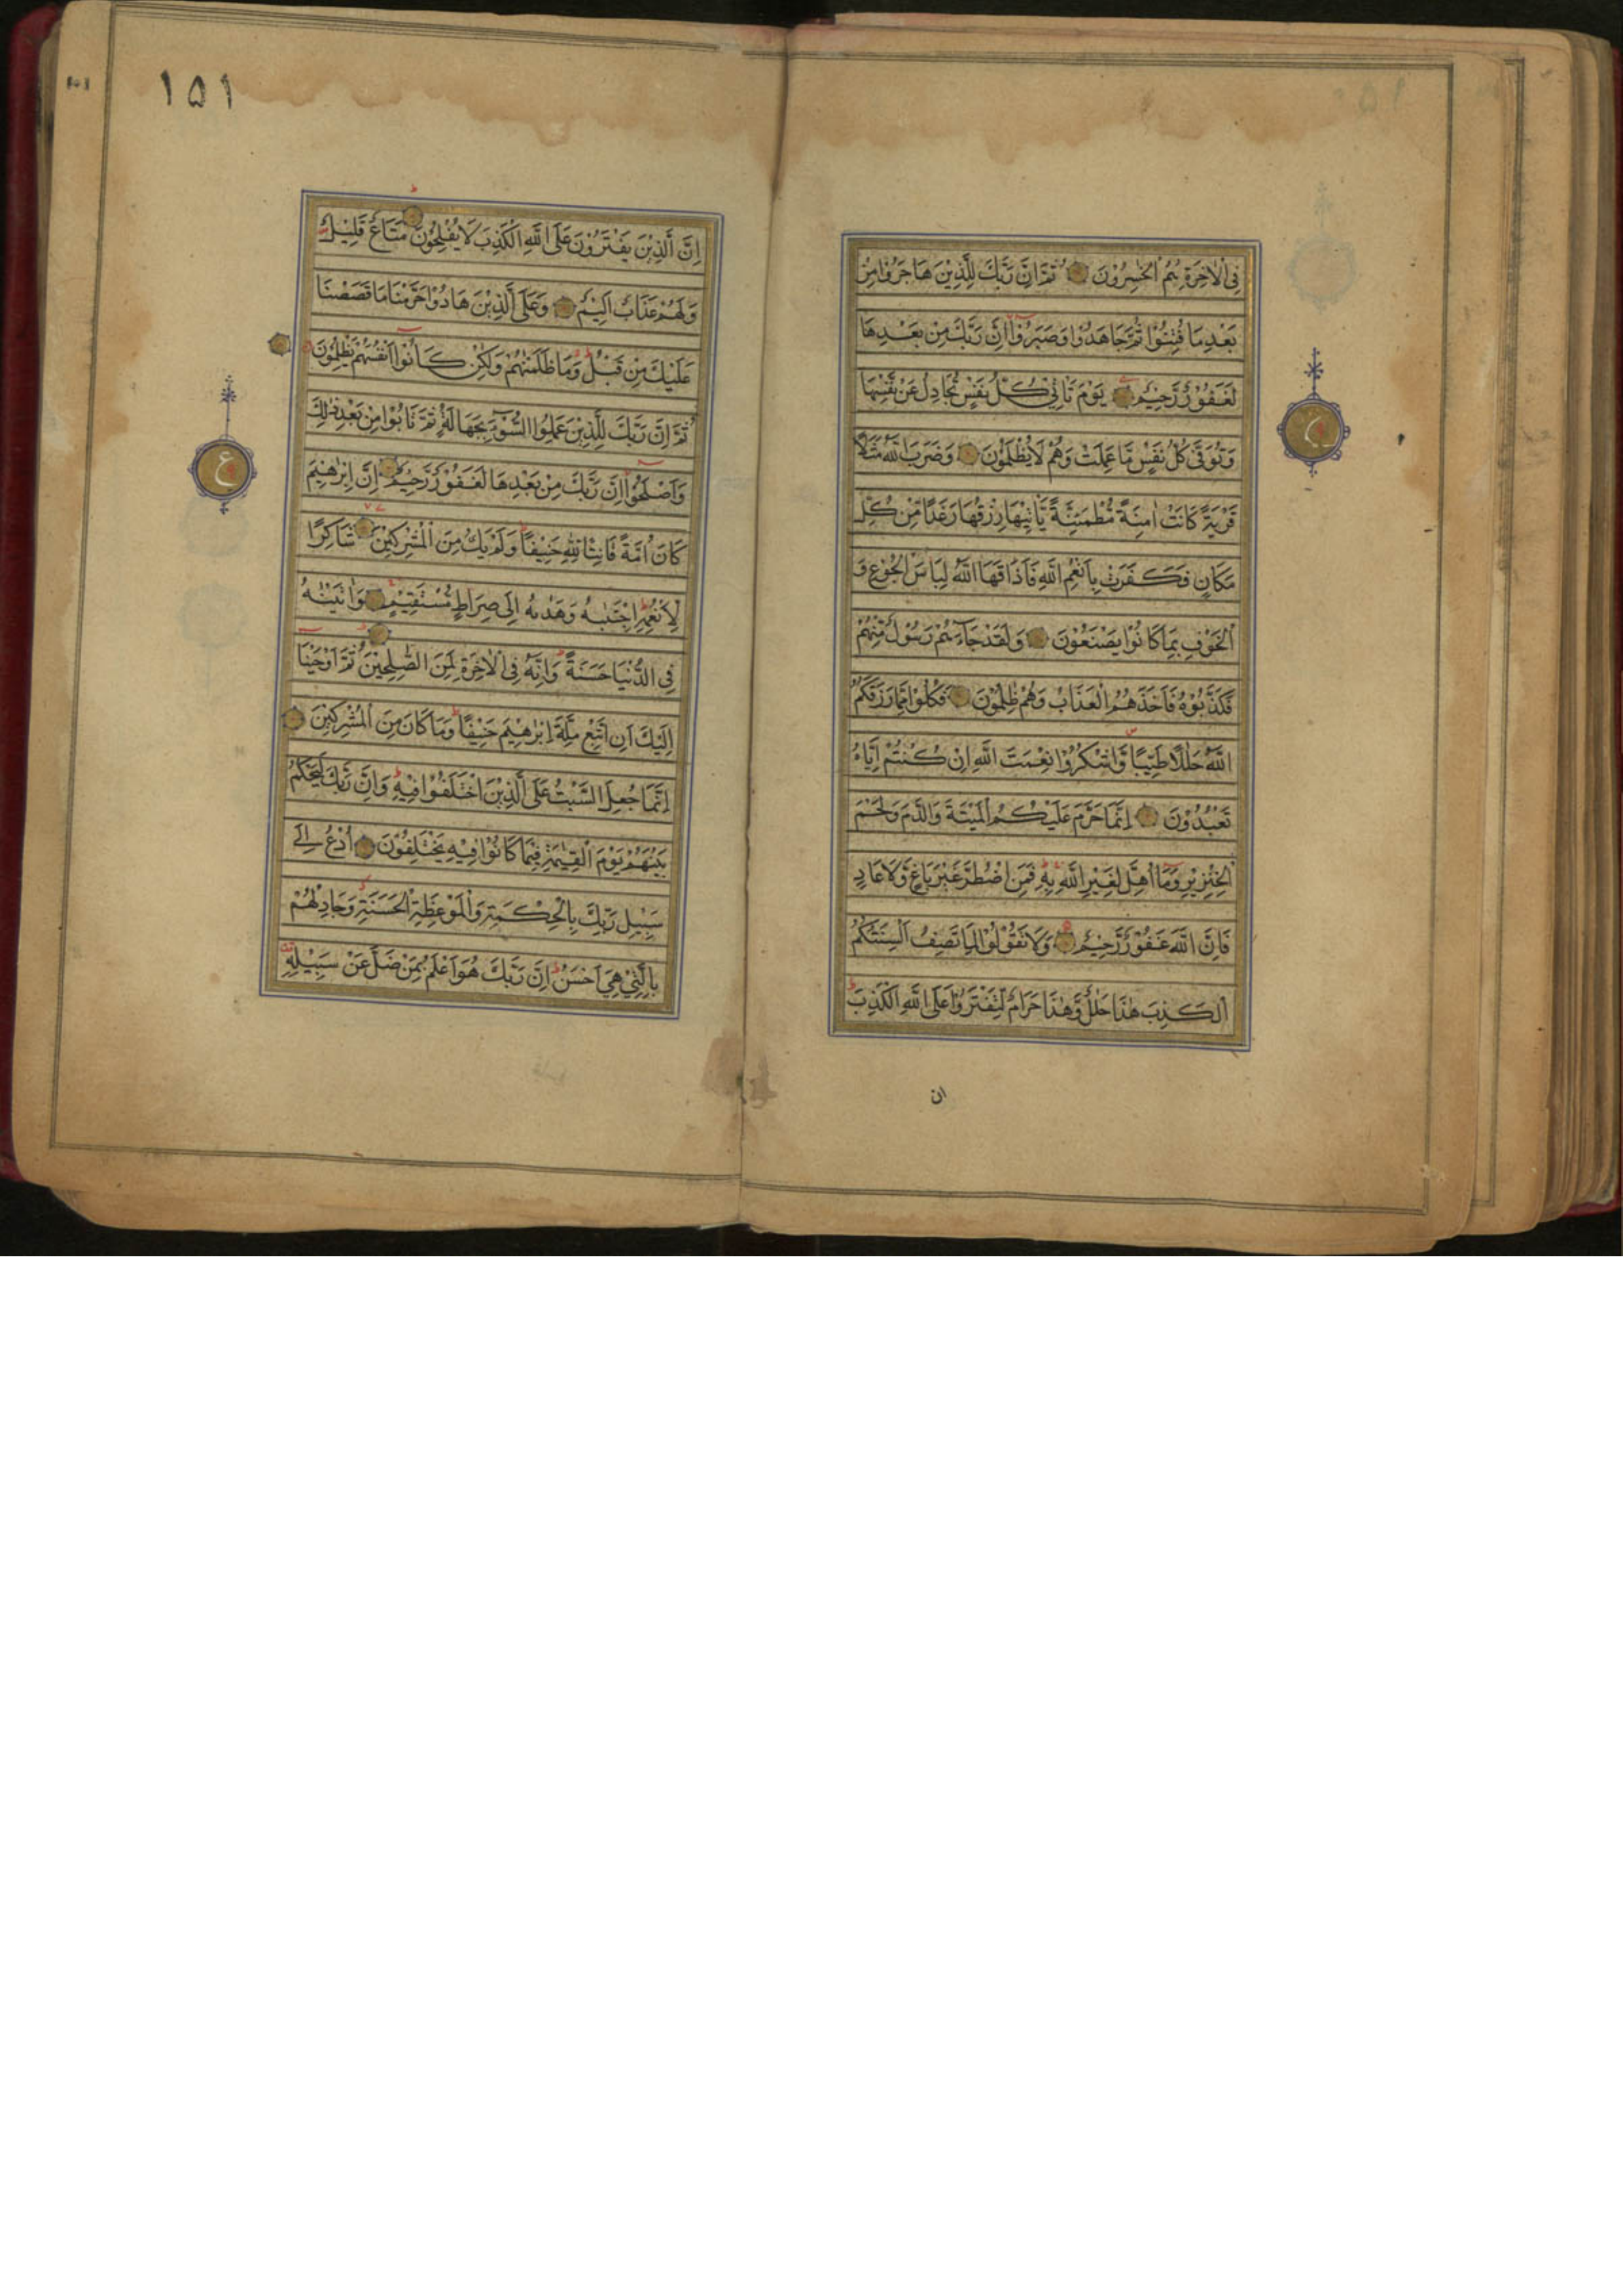 فِي الْاٰخِرَةِ هُمُ الْخٰسِرُوْنَ ثُمَّ اِنَّ رَبَّكَ لِلَّذِيْنَ هَاجَرُوْا مِنْ
بَعْدِ مَا فُتِنُوْا ثُمَّ جَاهَدُوْا وَصَبَرُوْا اِنَّ رَبَّكَ مِنْ بَعْدِهَا
لَغَفُوْرٌ رَّحِيْمٌ يَوْمَ تَأْتِيْ كُلُّ نَفْسٍ تُجَادِلُ عَنْ نَّفْسِهَا
وَتُوَفّٰى كُلُّ نَفْسٍ مَّا عَمِلَتْ وَهُمْ لَا يُظْلَمُوْنَ وَضَرَبَ اللّٰهُ مَثَلًا
قَرْيَةً كَانَتْ اٰمِنَةً مُّطْمَئِنَّةً يَّأْتِيْهَا رِزْقُهَا رَغَدًا مِّنْ كُلِّ
مَكَانٍ فَكَفَرَتْ بِاَنْعُمِ اللّٰهِ فَاَذَاقَهَا اللّٰهُ لِبَاسَ الْجُوْعِ وَ
الْخَوْفِ بِمَا كَانُوْا يَصْنَعُوْنَ وَلَقَدْ جَآءَهُمْ رَسُوْلٌ مِّنْهُمْ
فَكَذَّبُوْهُ فَاَخَذَهُمُ الْعَذَابُ وَهُمْ ظٰلِمُوْنَ فَكُلُوْا مِمَّا رَزَقَكُمُ
اللّٰهُ حَلٰلًا طَيِّبًا وَّاشْكُرُوْا نِعْمَتَ اللّٰهِ اِنْ كُنْتُمْ اِيَّاهُ
تَعْبُدُوْنَ اِنَّمَا حَرَّمَ عَلَيْكُمُ الْمَيْتَةَ وَالدَّمَ وَلَحْمَ
الْخِنْزِيْرِ وَمَا اُهِلَّ لِغَيْرِ اللّٰهِ بِهٖ فَمَنِ اضْطُرَّ غَيْرَ بَاغٍ وَّلَا عَادٍ
فَاِنَّ اللّٰهَ غَفُوْرٌ رَّحِيْمٌ وَلَا تَقُوْلُوْا لِمَا تَصِفُ اَلْسِنَتُكُمُ
الْكَذِبَ هٰذَا حَلٰلٌ وَّهٰذَا حَرَامٌ لِّتَفْتَرُوْا عَلَى اللّٰهِ الْكَذِبَ
ان
١٥١
اِنَّ الَّذِيْنَ يَفْتَرُوْنَ عَلَى اللّٰهِ الْكَذِبَ لَا يُفْلِحُوْنَ مَتَاعٌ قَلِيْلٌ
وَلَهُمْ عَذَابٌ اَلِيْمٌ وَعَلَى الَّذِيْنَ هَادُوْا حَرَّمْنَا مَا قَصَصْنَا
عَلَيْكَ مِنْ قَبْلُ وَمَا ظَلَمْنٰهُمْ وَلٰكِنْ كَانُوْا اَنْفُسَهُمْ يَظْلِمُوْنَ
ثُمَّ اِنَّ رَبَّكَ لِلَّذِيْنَ عَمِلُوا السُّوْٓءَ بِجَهَالَةٍ ثُمَّ تَابُوْا مِنْ بَعْدِ ذٰلِكَ
وَاَصْلَحُوْا اِنَّ رَبَّكَ مِنْ بَعْدِهَا لَغَفُوْرٌ رَّحِيْمٌ اِنَّ اِبْرٰهِيْمَ
كَانَ اُمَّةً قَانِتًا لِّلّٰهِ حَنِيْفًا وَلَمْ يَكُ مِنَ الْمُشْرِكِيْنَ شَاكِرًا
لِّاَنْعُمِهٖ اِجْتَبٰىهُ وَهَدٰىهُ اِلٰى صِرَاطٍ مُّسْتَقِيْمٍ وَاٰتَيْنٰهُ
فِي الدُّنْيَا حَسَنَةً وَاِنَّهٗ فِي الْاٰخِرَةِ لَمِنَ الصّٰلِحِيْنَ ثُمَّ اَوْحَيْنَا
اِلَيْكَ اَنِ اتَّبِعْ مِلَّةَ اِبْرٰهِيْمَ حَنِيْفًا وَمَا كَانَ مِنَ الْمُشْرِكِيْنَ
اِنَّمَا جُعِلَ السَّبْتُ عَلَى الَّذِيْنَ اخْتَلَفُوْا فِيْهِ وَاِنَّ رَبَّكَ لَيَحْكُمُ
بَيْنَهُمْ يَوْمَ الْقِيٰمَةِ فِيْمَا كَانُوْا فِيْهِ يَخْتَلِفُوْنَ اُدْعُ اِلٰى
سَبِيْلِ رَبِّكَ بِالْحِكْمَةِ وَالْمَوْعِظَةِ الْحَسَنَةِ وَجَادِلْهُمْ
بِالَّتِيْ هِيَ اَحْسَنُ اِنَّ رَبَّكَ هُوَ اَعْلَمُ بِمَنْ ضَلَّ عَنْ سَبِيْلِهٖ
ع